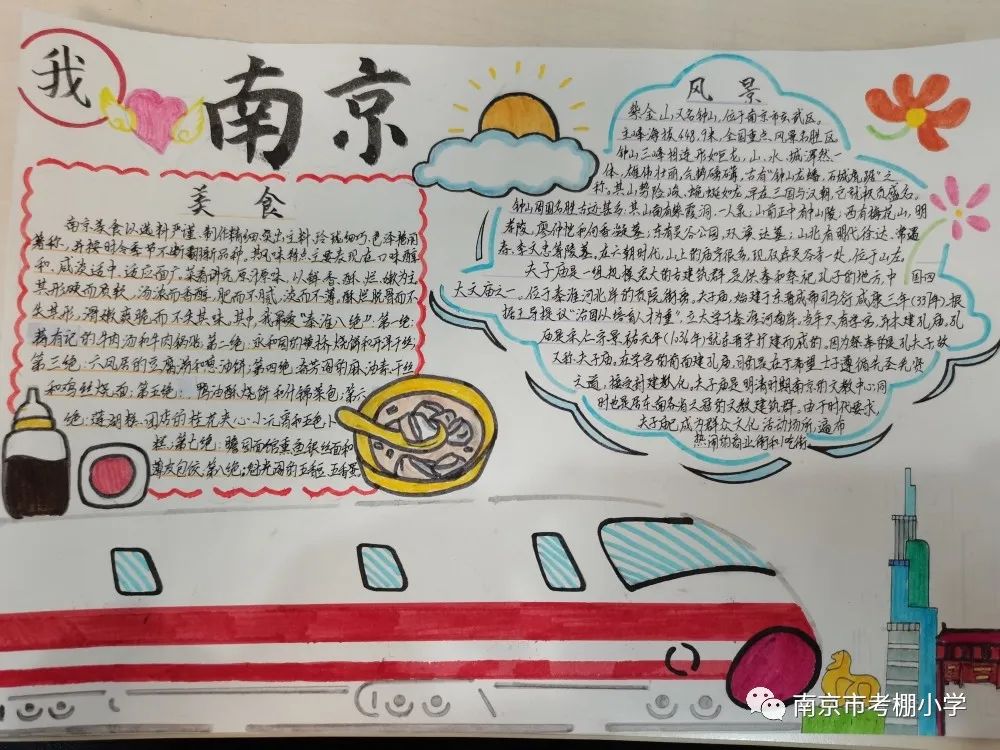 我
南京
美食
南京美食以选料严谨、制作精细、突出主料、玲珑细巧、色泽艳丽
著称，并按时令季节不断翻新品种。其风味特点主要表现在口味醇
和、咸淡适中、适应面广。菜肴讲究原汁原味，以鲜、香、酥、烂、嫩为主
其形硬而质软，汤浓而香醇，肥而不腻，淡而不薄，酥烂脱骨而不
失其形，滑嫩爽脆而不失其味。其中，我最爱“秦淮八绝”：第一绝：
蒋有记的牛肉汤和牛肉锅贴；第二绝：永和园的
烧饼和开洋干丝
第三绝：六凤居的豆腐涝和葱油饼；第四绝：奇芳阁的麻油素干丝
和鸡丝烧面；第五绝：鸭油酥烧饼和什锦菜包；第六
绝：莲湖糕团店的桂花夹心小元宵和五色小
糕；第七绝：瞻园面馆熏鱼银丝面和
薄皮包饺；第八绝：魁光阁的五香豆、五香蛋
风景
紫金山，又名钟山，位于南京市玄武区。
主峰海拔448.9米，全国重点风景名胜区
钟山三峰相连形如巨龙，山、水、城浑然一
体，雄伟壮丽，气势磅礴，古有“钟山龙蟠，石城虎踞”之
称。其山势险峻，蜿蜒如龙，早在三国与汉朝，它就极负盛名。
钟山周围名胜古迹甚多：其山南有紫霞洞、一人泉；山前正中有中山陵；西有梅花山、明
孝陵、廖仲恺和何香凝墓；东有灵谷公园、邓演达墓；山北有明代徐达、常遇
春、李文忠等陵墓。在六朝时代，山上的庙宇很多，现仅存灵谷寺一处，位于山左。
夫子庙是一组规模宏大的古建筑群，是供奉和祭祀孔子的地方，中国四
大文庙之一，位于秦淮河北岸的贡院街旁。夫子庙始建于东晋成帝司马衍咸康三年(337年)，根
据王导提议“治国以培育人才为重”，立太学于秦淮河南岸。当年只有学宫，并未建孔庙。孔
庙是宋仁宗景祐元年(1034年)就东晋学宫扩建而成的。因为祭奉的是孔夫子，故
又称夫子庙。在学宫的前面建孔庙，目的是在于希望士子遵循先圣先贤
之道，接受封建教化。夫子庙是明清时期南京的文教中心，同
时也是居东南各省之冠的文教建筑群。由于时代要求，
夫子庙已成为群众文化活动场所，遍布
热闹的商业街和吃街
南京市考棚小学